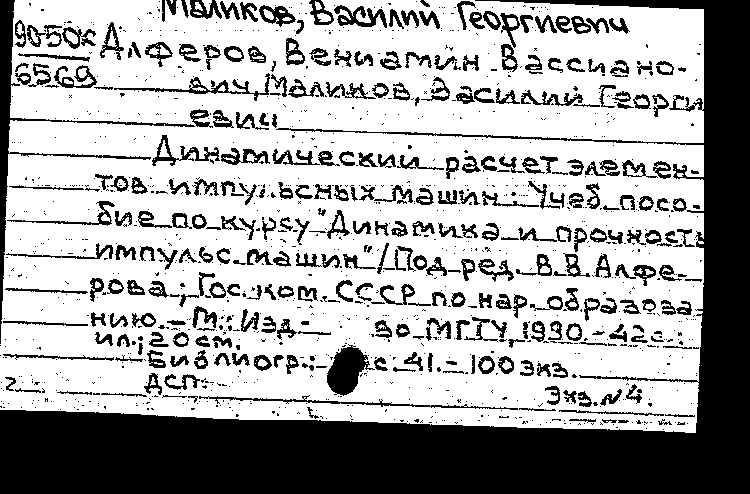 Маликов, Василий Георгиевич
90-50к Алферов, Вениамин Вассиано-
6569 вич, Маликов, Василий Георги
евич
Динамический расчет элемен-
тов импульсных машин: Учеб. посо-
бие по курсу "Динамика и прочность
импульс. машин"/Под ред. В.В. Алфе-
рова; Гос. ком. СССР по нар. образова-
нию. - М.: Изд- во МГТУ, 1990. - 42 с.:
ил.; 20 см.
Библиогр.: с. 41. - 100 экз.
ДСП. Экз. N4.
2